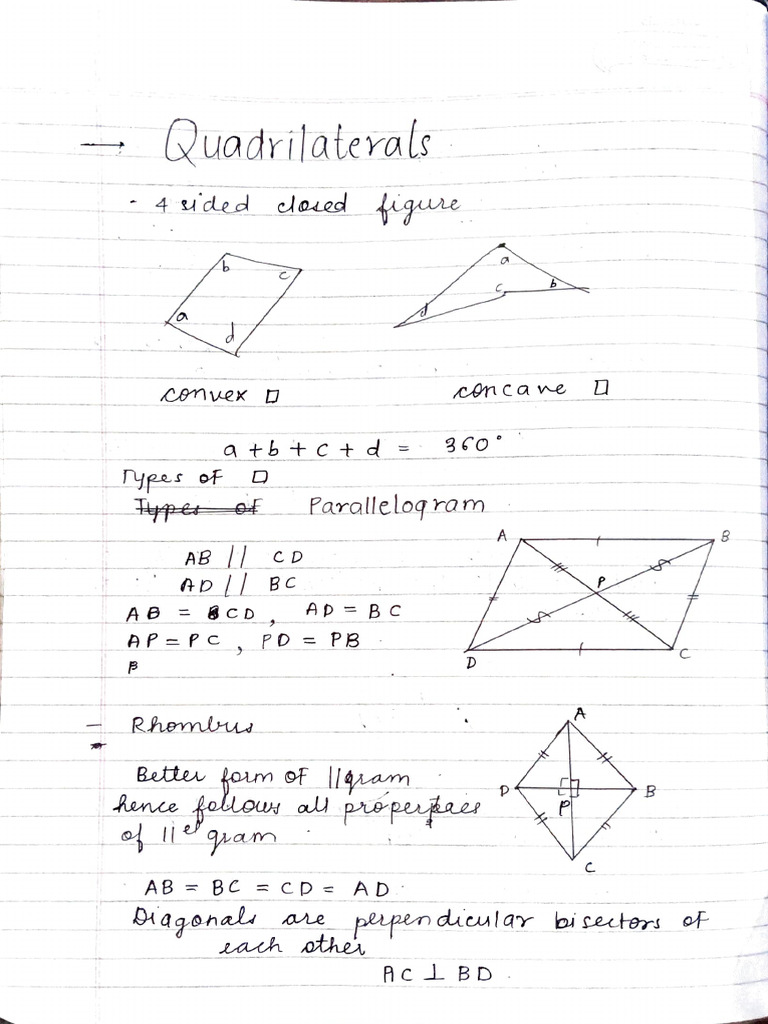 → Quadrilaterals
- 4 sided closed figure
b c a d
a c b d
convex □ concave □
a + b + c + d = 360°
Types of □
Types of Parallelogram
A B
AB // CD
AD // BC
P
AB = BCD, AD = BC
AP = PC, PD = PB
D C
B
- Rhombus
A
Better form of //gram
D B
hence follows all properties
P
of //el gram
C
AB = BC = CD = AD
Diagonals are perpendicular bisectors of
each other
AC ⊥ BD